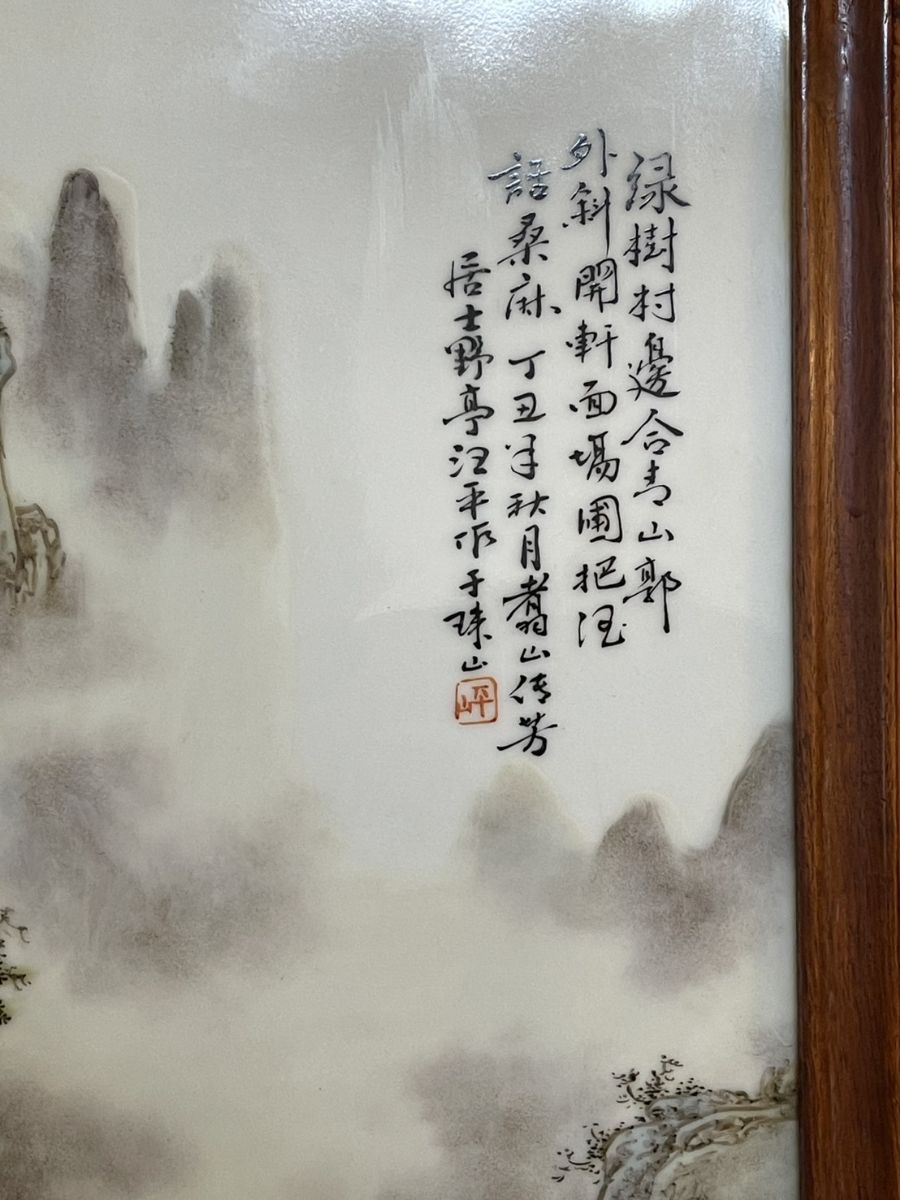 绿樹村邊合青山郭
外斜開軒面場圃把酒
話桑麻 丁丑年秋月翥山传芳
居士野亭汪平作于珠山
岼